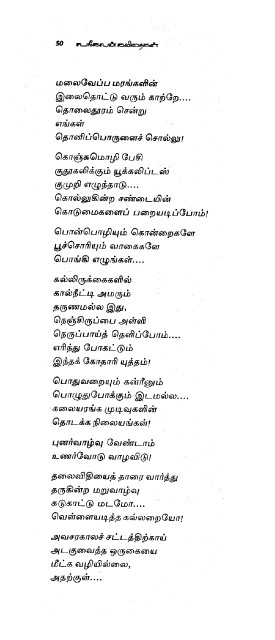 50
மலைவேப்ப மரங்களின்
இலைதொட்டு வரும் காற்றே....
தொலைதூரம் சென்று
எங்கள்
தொனிப்பொருளைச் சொல்லு!
கொஞ்சுமொழி பேசி
குதூகலிக்கும் யூக்கலிப்டஸ்
குமுறி எழுந்தாடு....
கொல்லுகின்ற சண்டையின்
கொடுமைகளைப் பறையடிப்போம்!
பொன்பொழியும் கொன்றைகளே
பூச்சொரியும் வாகைகளே
பொங்கி எழுங்கள்....
கல்லிருக்கைகளில்
கால்நீட்டி அமரும்
தருணமல்ல இது,
நெஞ்சிருப்பை அள்ளி
நெருப்பாய்த் தெளிப்போம்....
எரித்து போகட்டும்
இந்தக் கோதாரி யுத்தம்!
பொதுவறையும் கன்ரீனும்
பொழுதுபோக்கும் இடமல்ல....
கலையரங்க முடிவுகளின்
தொடக்க நிலையங்கள்!
புனர்வாழ்வு வேண்டாம்
உணர்வோடு வாழவிடு!
தலைவிதியைத் தாரை வார்த்து
தருகின்ற மறுவாழ்வு
கடுகாட்டு மடமோ....
வெள்ளையடித்த கல்லறையோ!
அவசரகாலச் சட்டத்திற்காய்
அடகுவைத்த ஒருகையை
மீட்க வழியில்லை,
அதற்குள்....